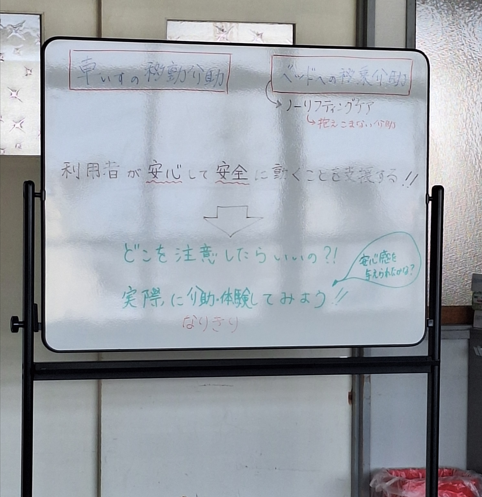 車いすの移動介助
ベッドへの移乗介助
ノーリフティングケア
抱えこまない介助
利用者が安心して安全に動くことを支援する!!
どこを注意したらいいの?!
安心感を
与えられるかな?
実際に介助・体験してみよう!!
なりきり